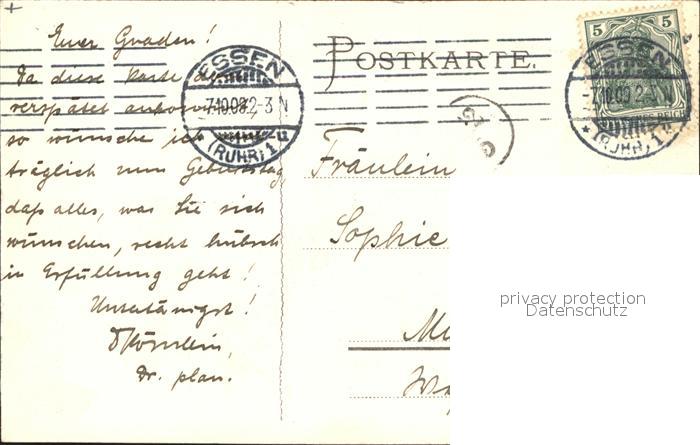 Euer Gnaden!
Da diese Karte
verspätet
so wünsche ich
träglich zum Geburtstag,
daß alles, was Sie sich
wünschen, recht hübsch
in Erfüllung geht!
Untertänigst!
Dr. plan.
ESSEN
7.10.09.2-3 N
(RUHR) 1
POSTKARTE.
5 5
ESSEN
7.10.09.2-3 N
REICH
* (RUHR) 1
Fräulein
Sophie
privacy protection
Datenschutz